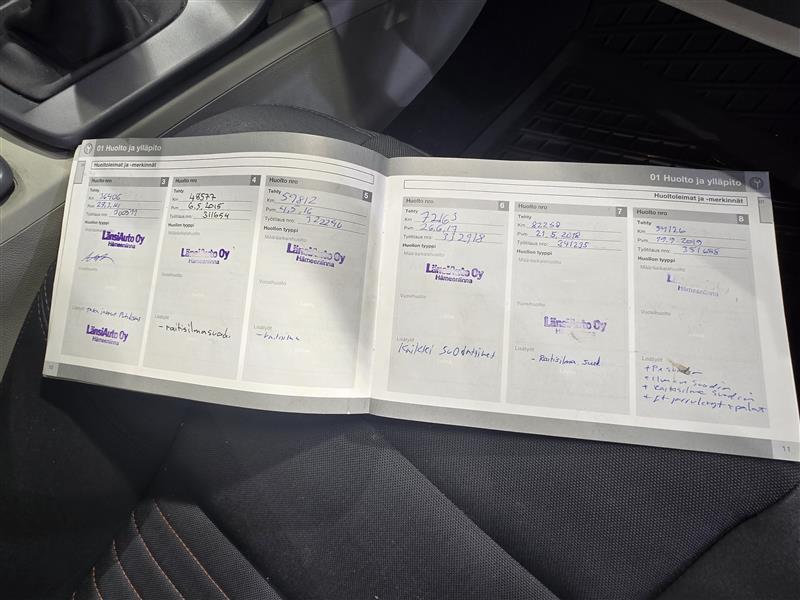 01 Huolto ja ylläpito
Huoltoleimat ja -merkinnät
Huolto nro 3
Tehty
Km 36406
Pvm
Työtilaus nro:
Huollon tyyppi
Määräaikaishuolto
LänsiAuto Oy
Hämeenlinna
Vuosihuolto
Lisätyöt
LänsiAuto Oy
Hämeenlinna
10
Huolto nro 4
Tehty
Km 48577
Pvm 6.5.2015
Työtilaus nro: 311654
Huollon tyyppi
Määräaikaishuolto
LänsiAuto Oy
Hämeenlinna
Vuosihuolto
Lisätyöt
- raitisilmasuodin
Huolto nro 5
Tehty
Km 59812
Pvm 4.5.16
Työtilaus nro: 322296
Huollon tyyppi
Määräaikaishuolto
LänsiAuto Oy
Hämeenlinna
Vuosihuolto
Lisätyöt
01 Huolto ja ylläpito
Huoltoleimat ja -merkinnät
Huolto nro 6
Tehty
Km 72163
Pvm 26.6.17
Työtilaus nro: 332918
Huollon tyyppi
Määräaikaishuolto
LänsiAuto Oy
Hämeenlinna
Vuosihuolto
Lisätyöt
Kaikki suodattimet
Huolto nro 7
Tehty
Km 82258
Pvm 21.5.2018
Työtilaus nro: 341225
Huollon tyyppi
Määräaikaishuolto
Vuosihuolto
LänsiAuto Oy
Hämeenlinna
Lisätyöt
- Raitisilma. suod
Huolto nro 8
Tehty
Km 94126
Pvm 19.9.2019
Työtilaus nro: 351688
Huollon tyyppi
Määräaikaishuolto
LänsiAuto Oy
Hämeenlinna
Vuosihuolto
Lisätyöt
+ Ilman suodin
+ Raitisilma suodin
+ et. jarrulevyt + palat
11